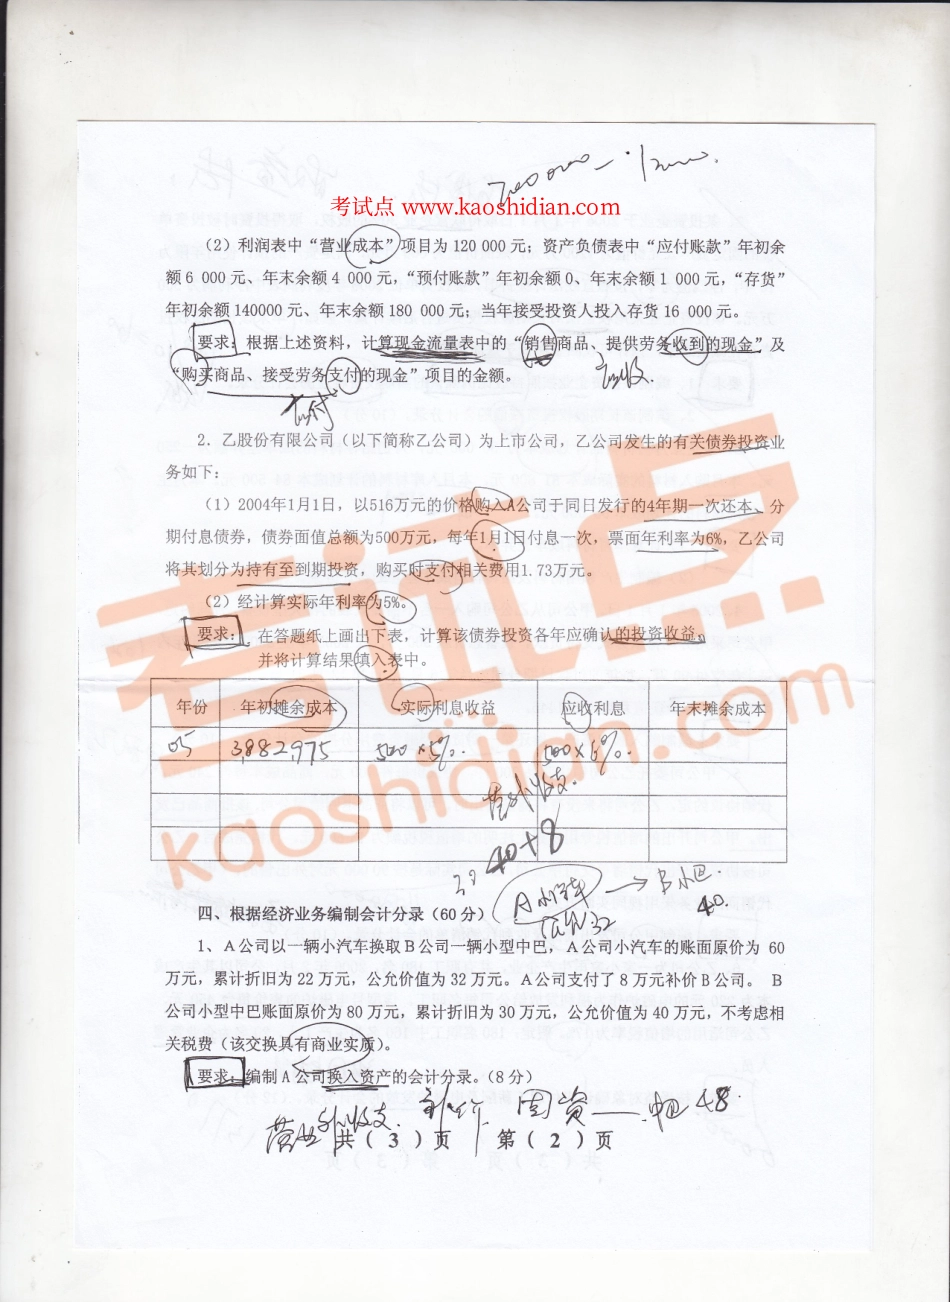 考试点 www.kaoshidian.com
（2）利润表中“营业成本”项目为 120 000 元；资产负债表中“应付账款”年初余
额 6 000 元、年末余额 4 000 元，“预付账款”年初余额 0、年末余额 1 000 元，“存货”
年初余额 140000 元、年末余额 180 000 元；当年接受投资人投入存货 16 000 元。
要求：根据上述资料，计算现金流量表中的“销售商品、提供劳务收到的现金”及
“购买商品、接受劳务支付的现金”项目的金额。
应收
应付
2．乙股份有限公司（以下简称乙公司）为上市公司，乙公司发生的有关债券投资业
务如下：
（1）2004年1月1日，以516万元的价格购入A公司于同日发行的4年期一次还本、分
期付息债券，债券面值总额为500万元，每年1月1日付息一次，票面年利率为6%，乙公司
将其划分为持有至到期投资，购买时支付相关费用1.73万元。
（2）经计算实际年利率为5%。
要求：在答题纸上画出下表，计算该债券投资各年应确认的投资收益，
并将计算结果填入表中。
年份 年初摊余成本 实际利息收益 应收利息 年末摊余成本
05 3,882,975 500×5% 500×6%
营业外收支
40+8
A小汽车 → B小巴
公允32 40.
四、根据经济业务编制会计分录（60 分）
1、A公司以一辆小汽车换取B公司一辆小型中巴，A公司小汽车的账面原价为 60
万元，累计折旧为 22 万元，公允价值为 32 万元。A公司支付了 8 万元补价B公司。 B
公司小型中巴账面原价为 80 万元，累计折旧为 30 万元，公允价值为 40 万元，不考虑相
关税费（该交换具有商业实质）。
要求：编制A公司换入资产的会计分录。（8 分）
营业外收支 补价 固资—中巴 48
共（3）页 第（2）页
考试点
kaoshidian.com